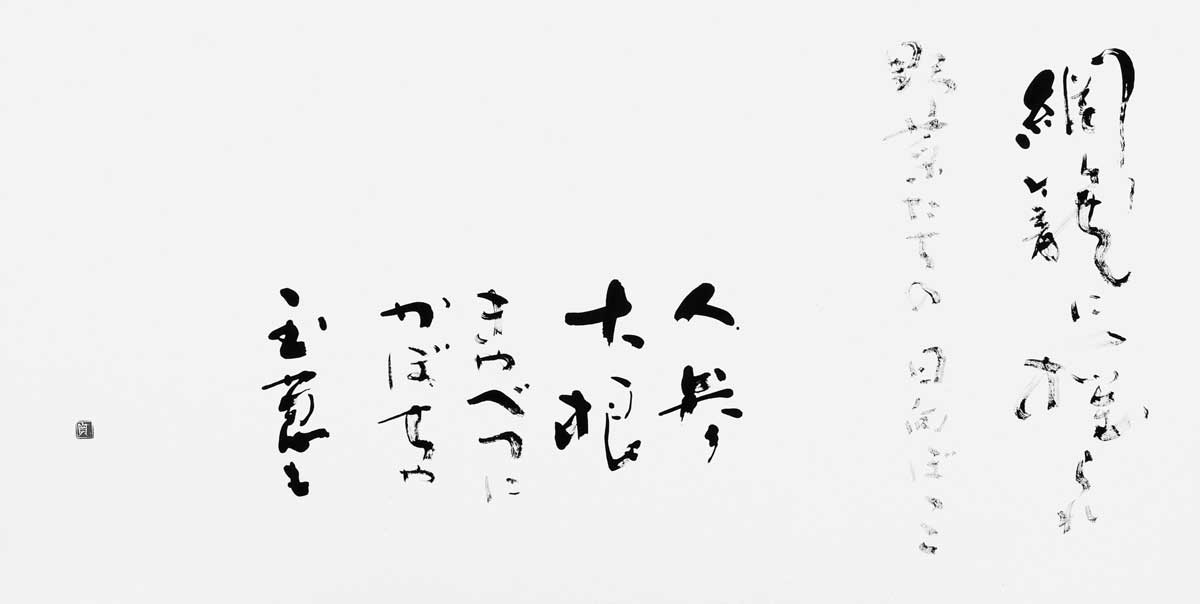 網籠に揺られ
野菜たちの日向ぼっこ
人参
大根
きゃべつに
かぼちゃ
玉葱も